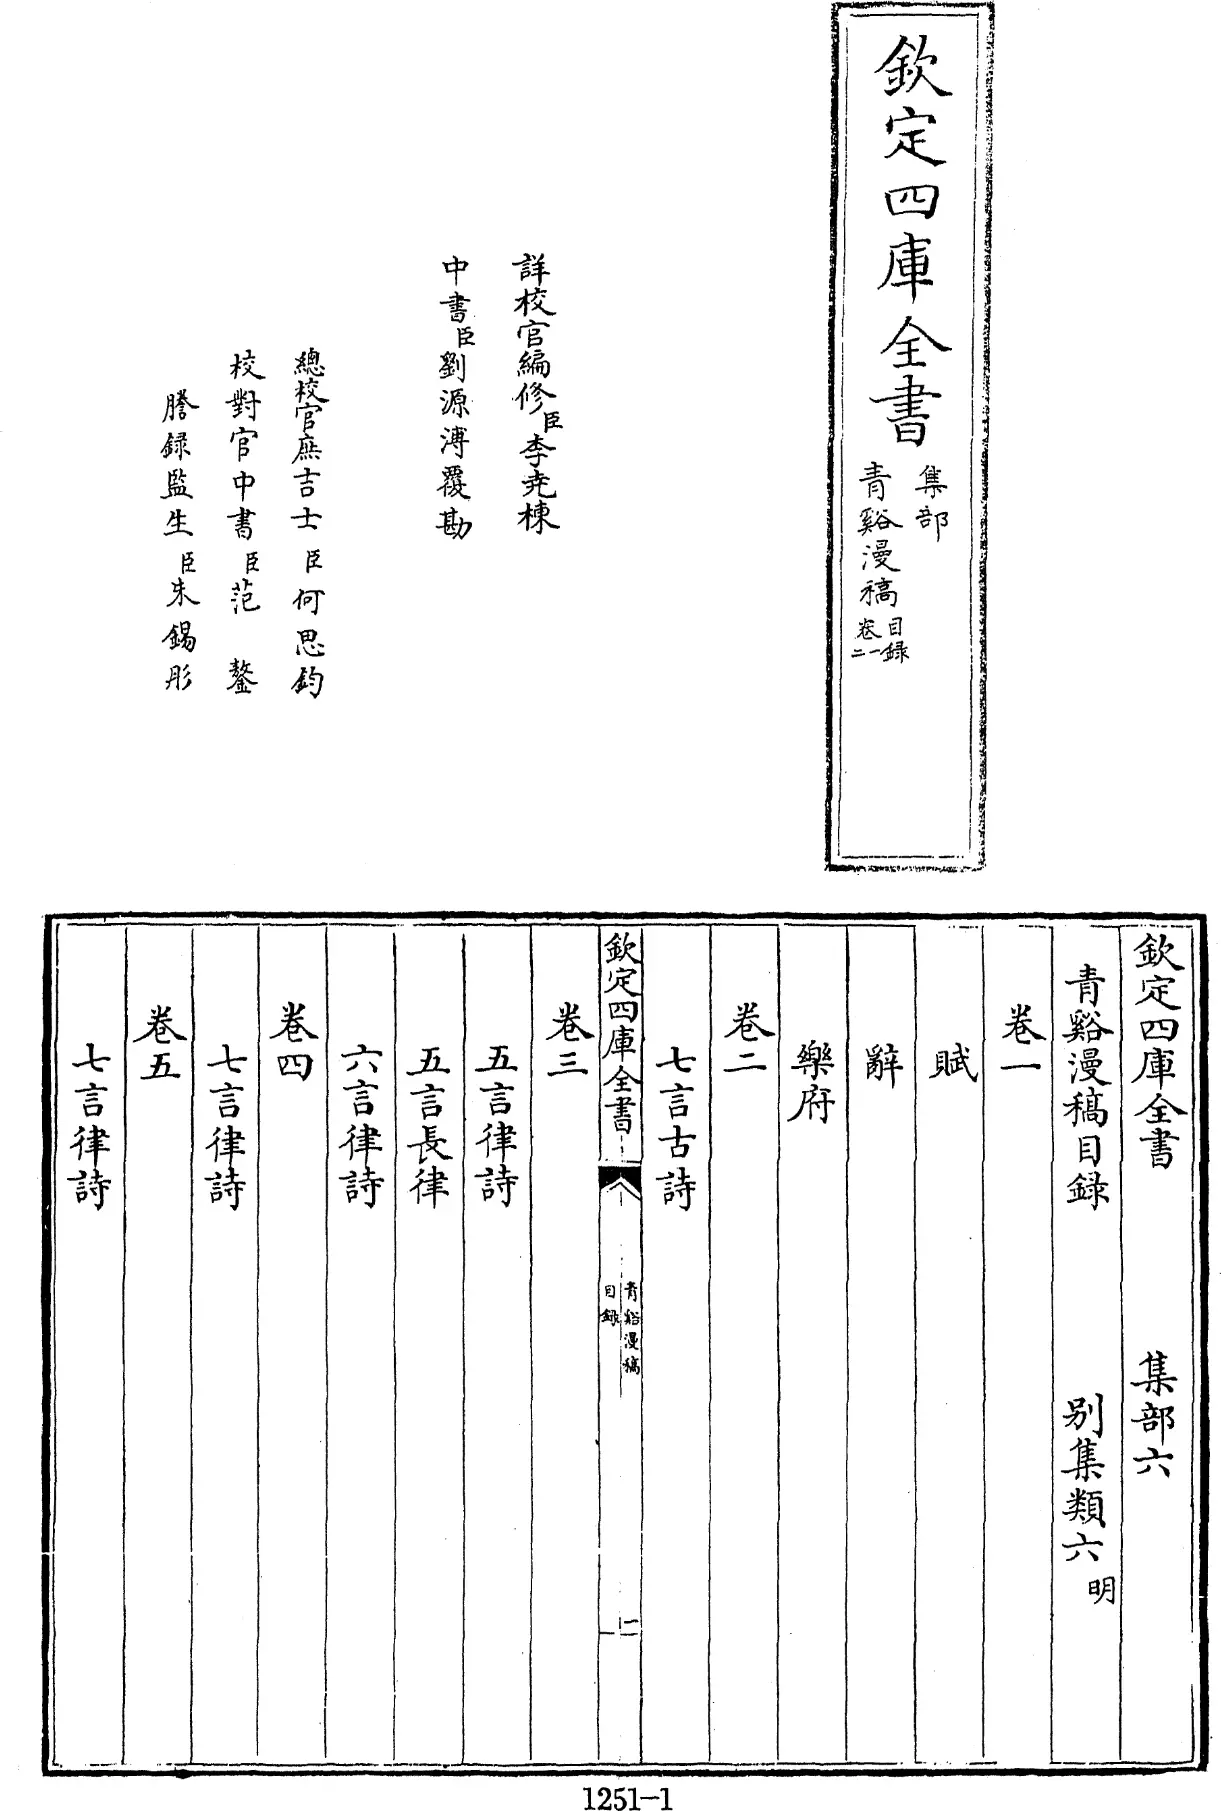 欽定四庫全書
集部
青谿漫稿
目録
卷一
二
詳校官編修臣李尭棟
中書臣劉源溥覆勘
總校官庶吉士臣何思鈞
校對官中書臣范鏊
謄録監生臣朱錫彤
欽定四庫全書 集部六
青谿漫稿目録 别集類六 明
卷一
賦
辭
樂府
卷二
七言古詩
欽定四庫全書
青谿漫稿
目録
卷三
五言律詩
五言長律
六言律詩
卷四
七言律詩
卷五
七言律詩
1251-1